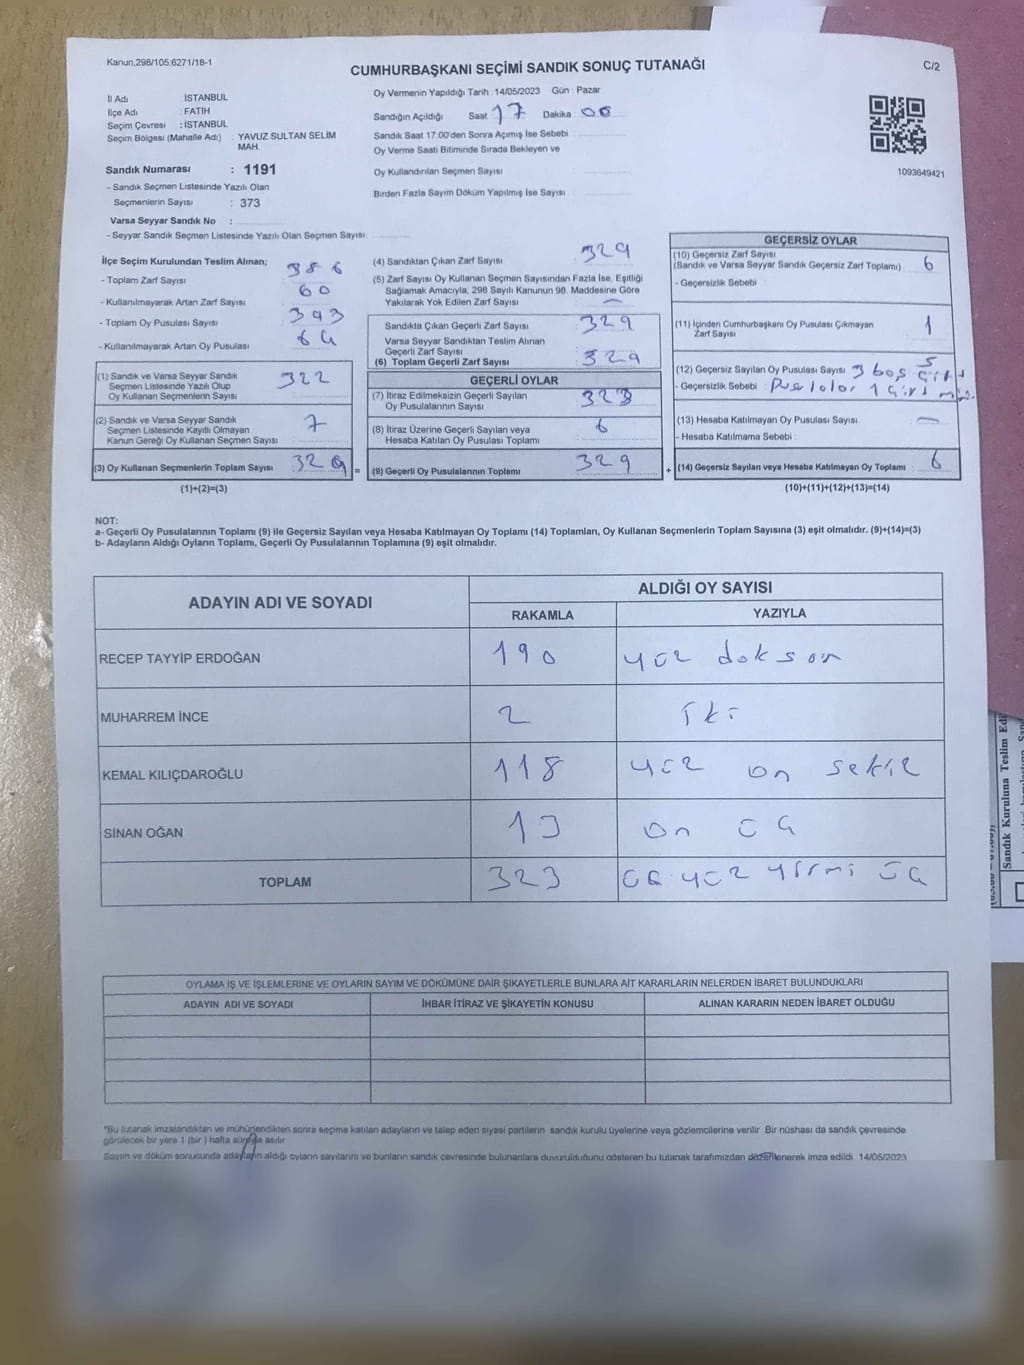 Kanun,298/105,6271/18-1
CUMHURBAŞKANI SEÇİMİ SANDIK SONUÇ TUTANAĞI
C/2
İl Adı : İSTANBUL
İlçe Adı : FATİH
Seçim Çevresi : İSTANBUL
Seçim Bölgesi (Mahalle Adı) : YAVUZ SULTAN SELİM
MAH.
Sandık Numarası : 1191
- Sandık Seçmen Listesinde Yazılı Olan
Seçmenlerin Sayısı : 373
Varsa Seyyar Sandık No :
- Seyyar Sandık Seçmen Listesinde Yazılı Olan Seçmen Sayısı:
Oy Vermenin Yapıldığı Tarih : 14/05/2023 Gün : Pazar
Sandığın Açıldığı Saat : 17 Dakika : 00
Sandık Saat 17:00'den Sonra Açımış İse Sebebi :
Oy Verme Saati Bitiminde Sırada Bekleyen ve
Oy Kullandırılan Seçmen Sayısı :
Birden Fazla Sayım Döküm Yapılmış İse Sayısı :
1093649421
İlçe Seçim Kurulundan Teslim Alınan;
- Toplam Zarf Sayısı : 386
- Kullanılmayarak Artan Zarf Sayısı : 60
- Toplam Oy Pusulası Sayısı : 393
- Kullanılmayarak Artan Oy Pusulası : 64
(1) Sandık ve Varsa Seyyar Sandık
Seçmen Listesinde Yazılı Olup
Oy Kullanan Seçmenlerin Sayısı : 322
(2) Sandık ve Varsa Seyyar Sandık
Seçmen Listesinde Kayıtlı Olmayan
Kanun Gereği Oy Kullanan Seçmen Sayısı : 7
(3) Oy Kullanan Seçmenlerin Toplam Sayısı : 329 =
(1)+(2)=(3)
(4) Sandıktan Çıkan Zarf Sayısı : 329
(5) Zarf Sayısı Oy Kullanan Seçmen Sayısından Fazla İse, Eşitliği
Sağlamak Amacıyla, 298 Sayılı Kanunun 98. Maddesine Göre
Yakılarak Yok Edilen Zarf Sayısı : —
Sandıkta Çıkan Geçerli Zarf Sayısı : 329
Varsa Seyyar Sandıktan Teslim Alınan
Geçerli Zarf Sayısı :
(6) Toplam Geçerli Zarf Sayısı : 329
GEÇERLİ OYLAR
(7) İtiraz Edilmeksizin Geçerli Sayılan
Oy Pusulalarının Sayısı : 323
(8) İtiraz Üzerine Geçerli Sayılan veya
Hesaba Katılan Oy Pusulası Toplamı : 6
(9) Geçerli Oy Pusulalarının Toplamı : 329 +
GEÇERSİZ OYLAR
(10) Geçersiz Zarf Sayısı
(Sandık ve Varsa Seyyar Sandık Geçersiz Zarf Toplamı) : 6
- Geçersizlik Sebebi :
(11) İçinden Cumhurbaşkanı Oy Pusulası Çıkmayan
Zarf Sayısı : 1
(12) Geçersiz Sayılan Oy Pusulası Sayısı : 5
3 boş
- Geçersizlik Sebebi :
(13) Hesaba Katılmayan Oy Pusulası Sayısı : —
- Hesaba Katılmama Sebebi :
(14) Geçersiz Sayılan veya Hesaba Katılmayan Oy Toplamı : 6
(10)+(11)+(12)+(13)=(14)
NOT:
a- Geçerli Oy Pusulalarının Toplamı (9) ile Geçersiz Sayılan veya Hesaba Katılmayan Oy Toplamı (14) Toplamları, Oy Kullanan Seçmenlerin Toplam Sayısına (3) eşit olmalıdır. (9)+(14)=(3)
b- Adayların Aldığı Oyların Toplamı, Geçerli Oy Pusulalarının Toplamına (9) eşit olmalıdır.
ADAYIN ADI VE SOYADI ALDIĞI OY SAYISI
RAKAMLA YAZIYLA
RECEP TAYYİP ERDOĞAN 190 yüz doksan
MUHARREM İNCE 2 iki
KEMAL KILIÇDAROĞLU 118 yüz on sekiz
SİNAN OĞAN 13 on üç
TOPLAM 323 üç yüz yirmi üç
OYLAMA İŞ VE İŞLEMLERİNE VE OYLARIN SAYIM VE DÖKÜMÜNE DAİR ŞİKAYETLERLE BUNLARA AİT KARARLARIN NELERDEN İBARET BULUNDUKLARI
ADAYIN ADI VE SOYADI İHBAR İTİRAZ VE ŞİKAYETİN KONUSU ALINAN KARARIN NEDEN İBARET OLDUĞU
*Bu tutanak imzalandıktan ve mühürlendikten sonra seçime katılan adayların ve talep eden siyasi partilerin sandık kurulu üyelerine veya gözlemcilerine verilir. Bir nüshası da sandık çevresinde
görülecek bir yere 1 (bir ) hafta süreyle asılır.
Sayım ve döküm sonucunda adayların aldığı oyların sayılarını ve bunların sandık çevresinde bulunanlara duyurulduğunu gösteren bu tutanak tarafımızdan düzenlenerek imza edildi. 14/05/2023
Sandık Kuruluna Teslim Edi